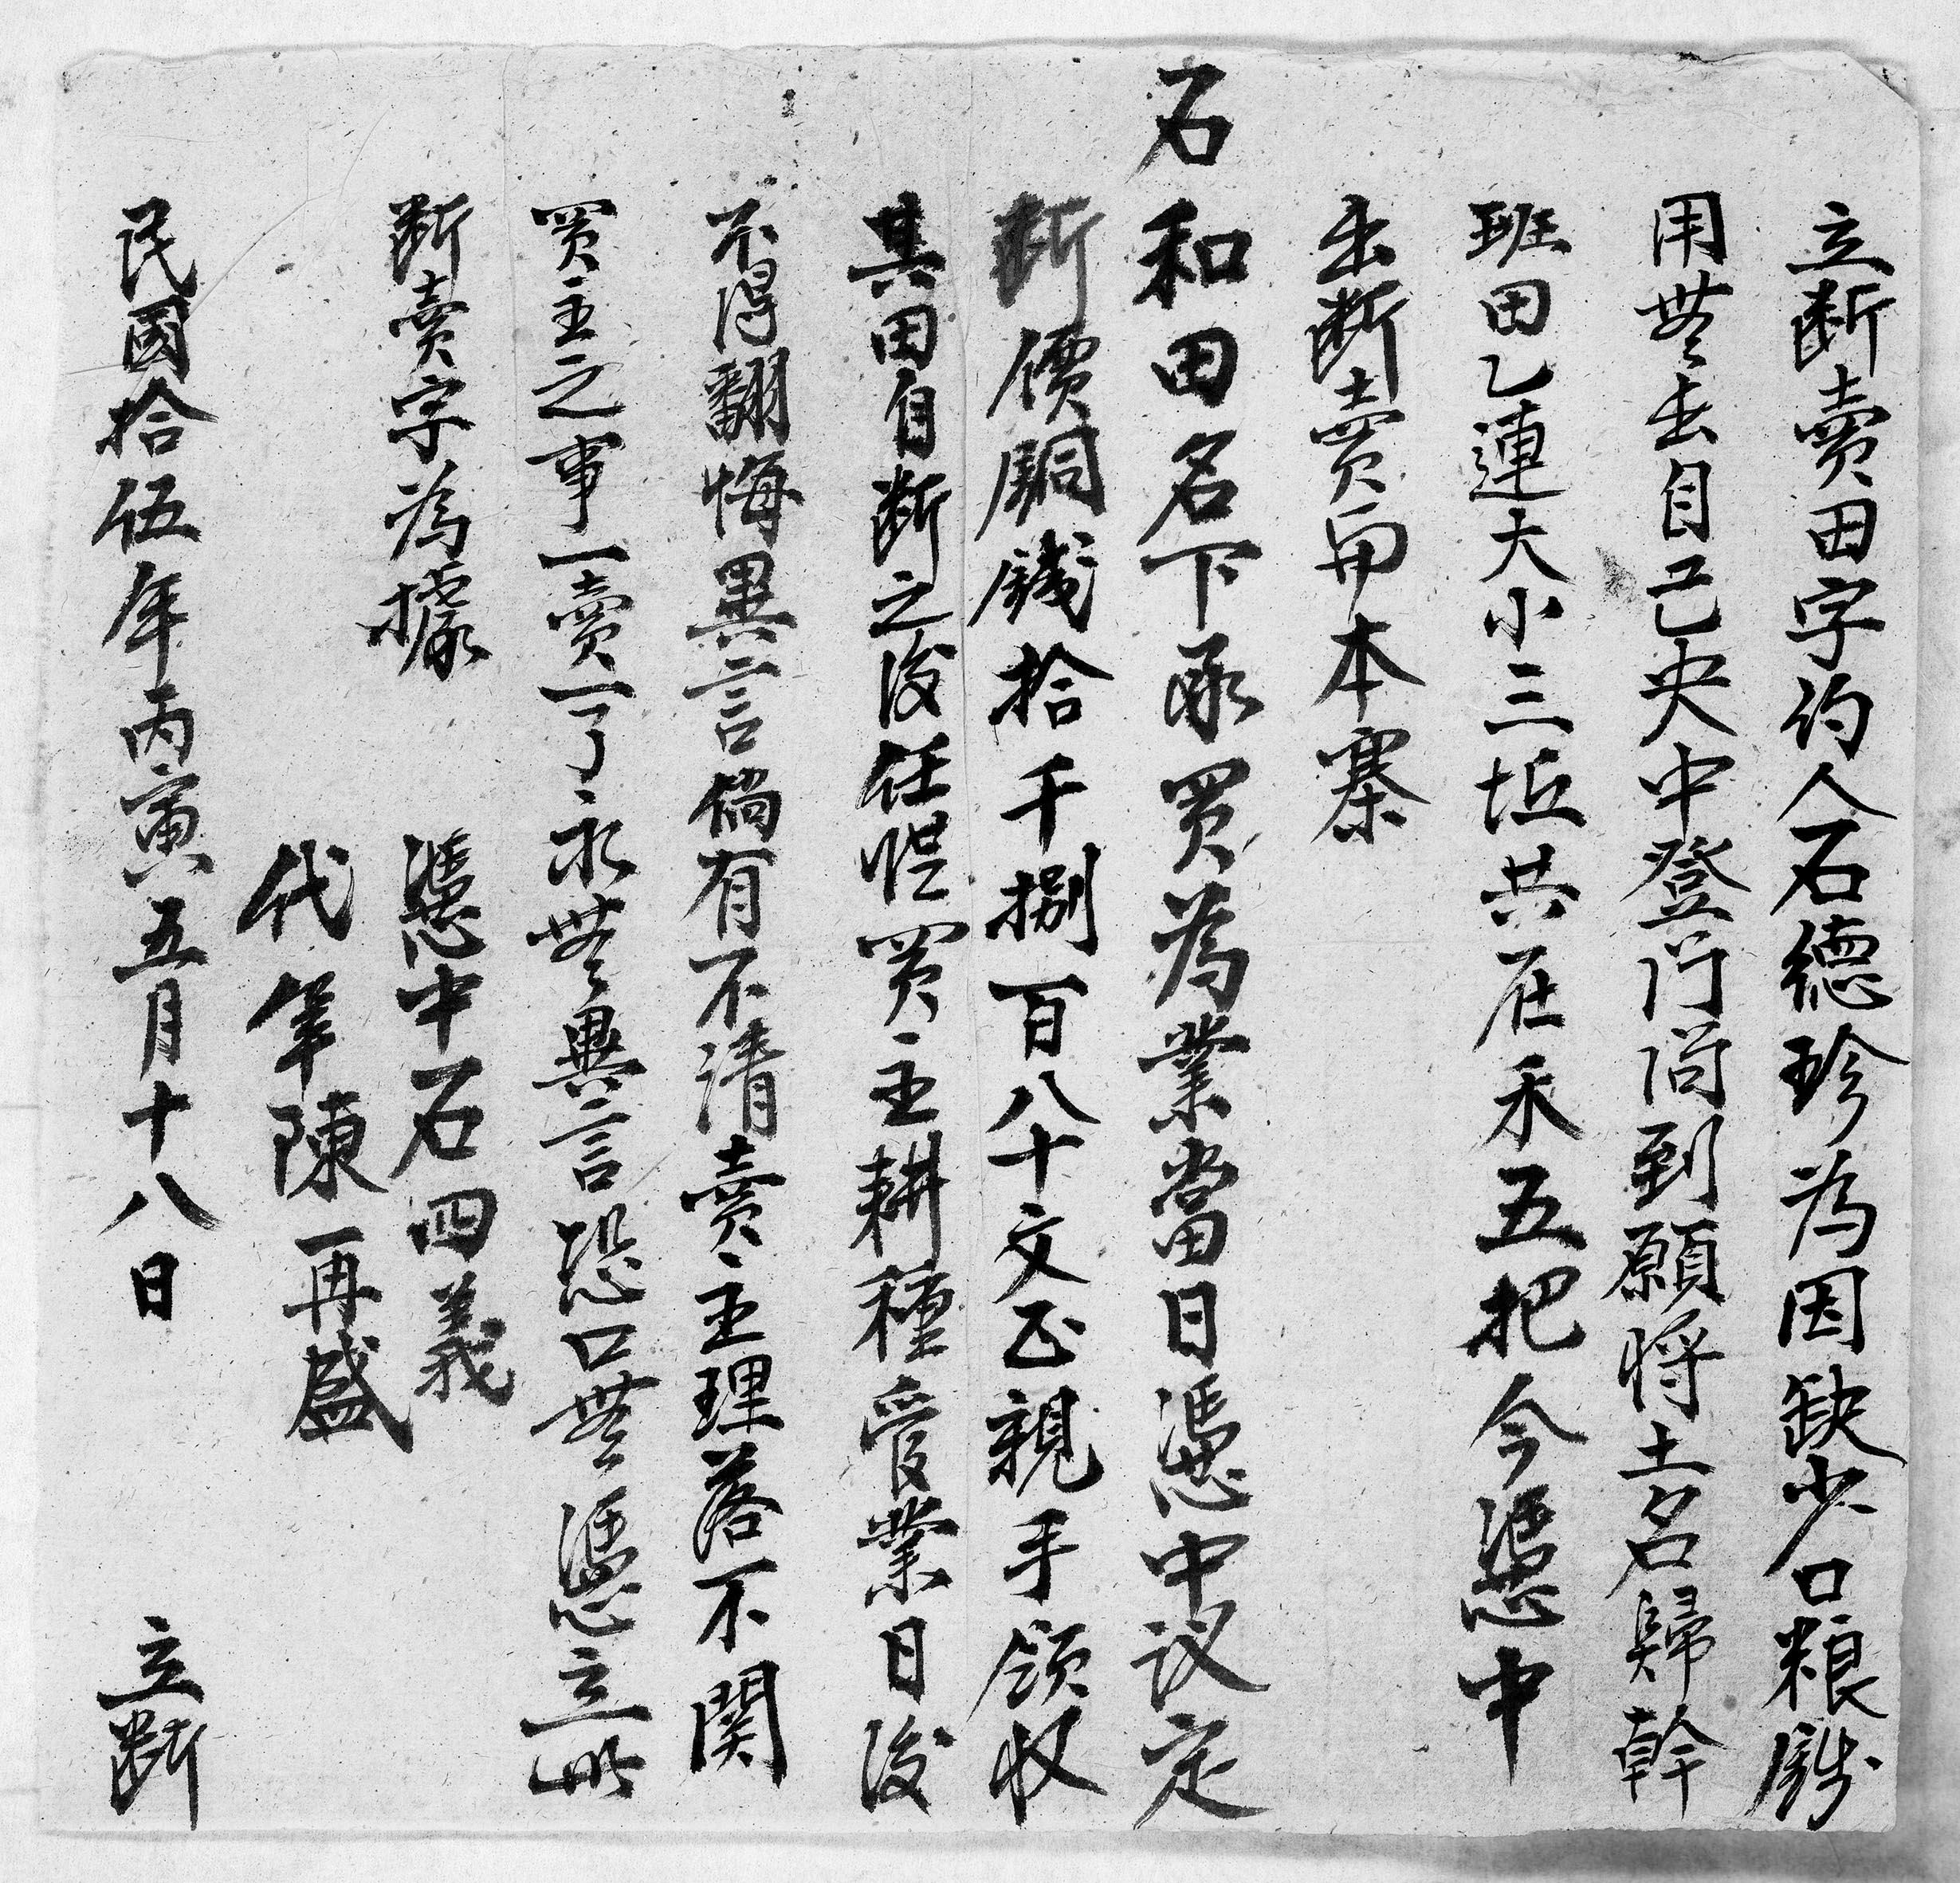 立断賣田字约人石德珍为因缺少口粮錢
用無出自己央中登门问到願将土名歸幹
班田乙連大小三坵共在禾五把今憑中
出断賣与本寨
石和田名下承買為業當日憑中议定
断價銅錢拾千捌百八十文正親手領収
其田自断之後任從買主耕種管業日後
不得翻悔異言倘有不清賣主理落不関
買主之事一賣一了永無異言恐口無憑立此
断賣字為據
憑中石四義
代筆陳再盛
民國拾伍年丙寅五月十八日 立断